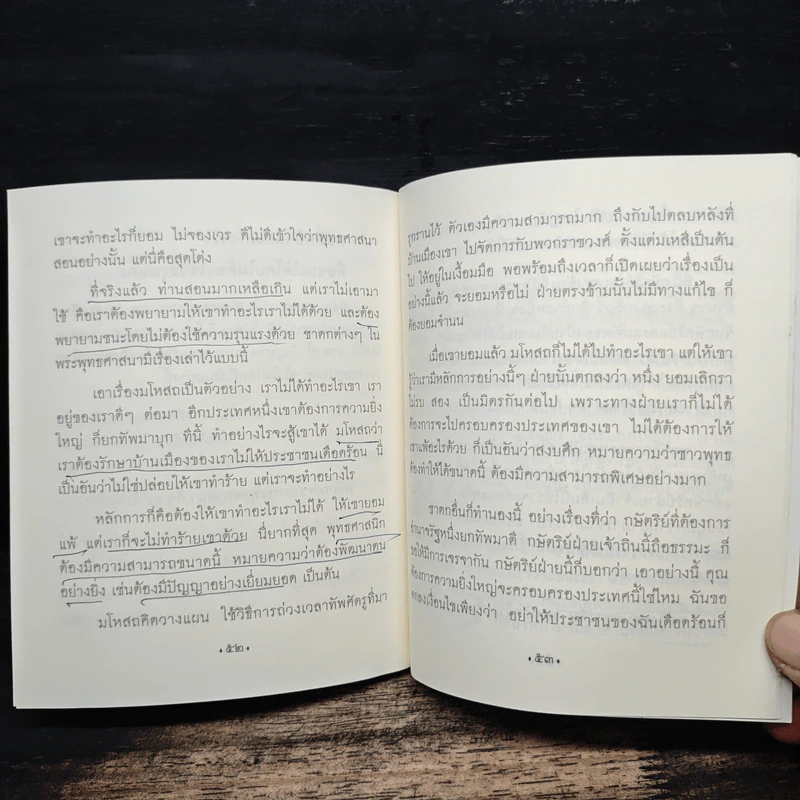 เขาจะทำอะไรก็ยอม ไม่จองเวร ดีไม่ดีเข้าใจว่าพุทธศาสนา
สอนอย่างนั้น แต่นี่คือสุดโต่ง
ที่จริงแล้ว ท่านสอนมากเหลือเกิน แต่เราไม่เอามา
ใช้ คือเราต้องพยายามให้เขาทำอะไรเราไม่ได้ด้วย และต้อง
พยายามชนะโดยไม่ต้องใช้ความรุนแรงด้วย ชาดกต่างๆ ใน
พระพุทธศาสนามีเรื่องเล่าไว้แบบนี้
เอาเรื่องมโหสถเป็นตัวอย่าง เราไม่ได้ทำอะไรเขา เรา
อยู่ของเราดีๆ ต่อมา อีกประเทศหนึ่งเขาต้องการความยิ่ง
ใหญ่ ก็ยกทัพมาบุก ทีนี้ ทำอย่างไรจะสู้เขาได้ มโหสถว่า
เราต้องรักษาบ้านเมืองของเราไม่ให้ประชาชนเดือดร้อน นี่
เป็นอันว่าไม่ใช่ปล่อยให้เขาทำร้าย แต่เราจะทำอย่างไร
หลักการก็คือต้องให้เขาทำอะไรเราไม่ได้ ให้เขายอม
แพ้ แต่เราก็จะไม่ทำร้ายเขาด้วย นี่ยากที่สุด พุทธศาสนิก
ต้องมีความสามารถขนาดนี้ หมายความว่าต้องพัฒนาตน
อย่างยิ่ง เช่นต้องมีปัญญาอย่างเยี่ยมยอด เป็นต้น
มโหสถคิดวางแผน ใช้วิธีการถ่วงเวลาทัพศัตรูที่มา
• ๕๒ •
รุกรานไว้ ตัวเองมีความสามารถมาก ถึงกับไปตลบหลังที่
บ้านเมืองเขา ไปจัดการกับพวกราชวงศ์ ตั้งแต่มเหสีเป็นต้น
ไป ให้อยู่ในเงื้อมมือ พอพร้อมถึงเวลาก็เปิดเผยว่าเรื่องเป็น
อย่างนี้แล้ว จะยอมหรือไม่ ฝ่ายตรงข้ามนั้นไม่มีทางแก้ไข ก็
ต้องยอมจำนน
เมื่อเขายอมแล้ว มโหสถก็ไม่ได้ไปทำอะไรเขา แต่ให้เขา
รู้ว่าเรามีหลักการอย่างนี้ๆ ฝ่ายนั้นตกลงว่า หนึ่ง ยอมเลิกรา
ไม่รบ สอง เป็นมิตรกันต่อไป เพราะทางฝ่ายเราก็ไม่ได้
ต้องการจะไปครอบครองประเทศของเขา ไม่ได้ต้องการให้
เขาแพ้อะไรด้วย ก็เป็นอันว่าสงบศึก หมายความว่าชาวพุทธ
ต้องทำให้ได้ขนาดนี้ ต้องมีความสามารถพิเศษอย่างมาก
ชาดกอื่นก็ทำนองนี้ อย่างเรื่องที่ว่า กษัตริย์ที่ต้องการ
อำนาจรัฐหนึ่งยกทัพมาตี กษัตริย์ฝ่ายเจ้าถิ่นนี้ถือธรรมะ ก็
ขอให้มีการเจรจากัน กษัตริย์ฝ่ายนี้ก็บอกว่า เอาอย่างนี้ คุณ
ต้องการความยิ่งใหญ่จะครอบครองประเทศนี้ใช่ไหม ฉันขอ
ตกลงเงื่อนไขเพียงว่า อย่าให้ประชาชนของฉันเดือดร้อนก็
• ๕๓ •